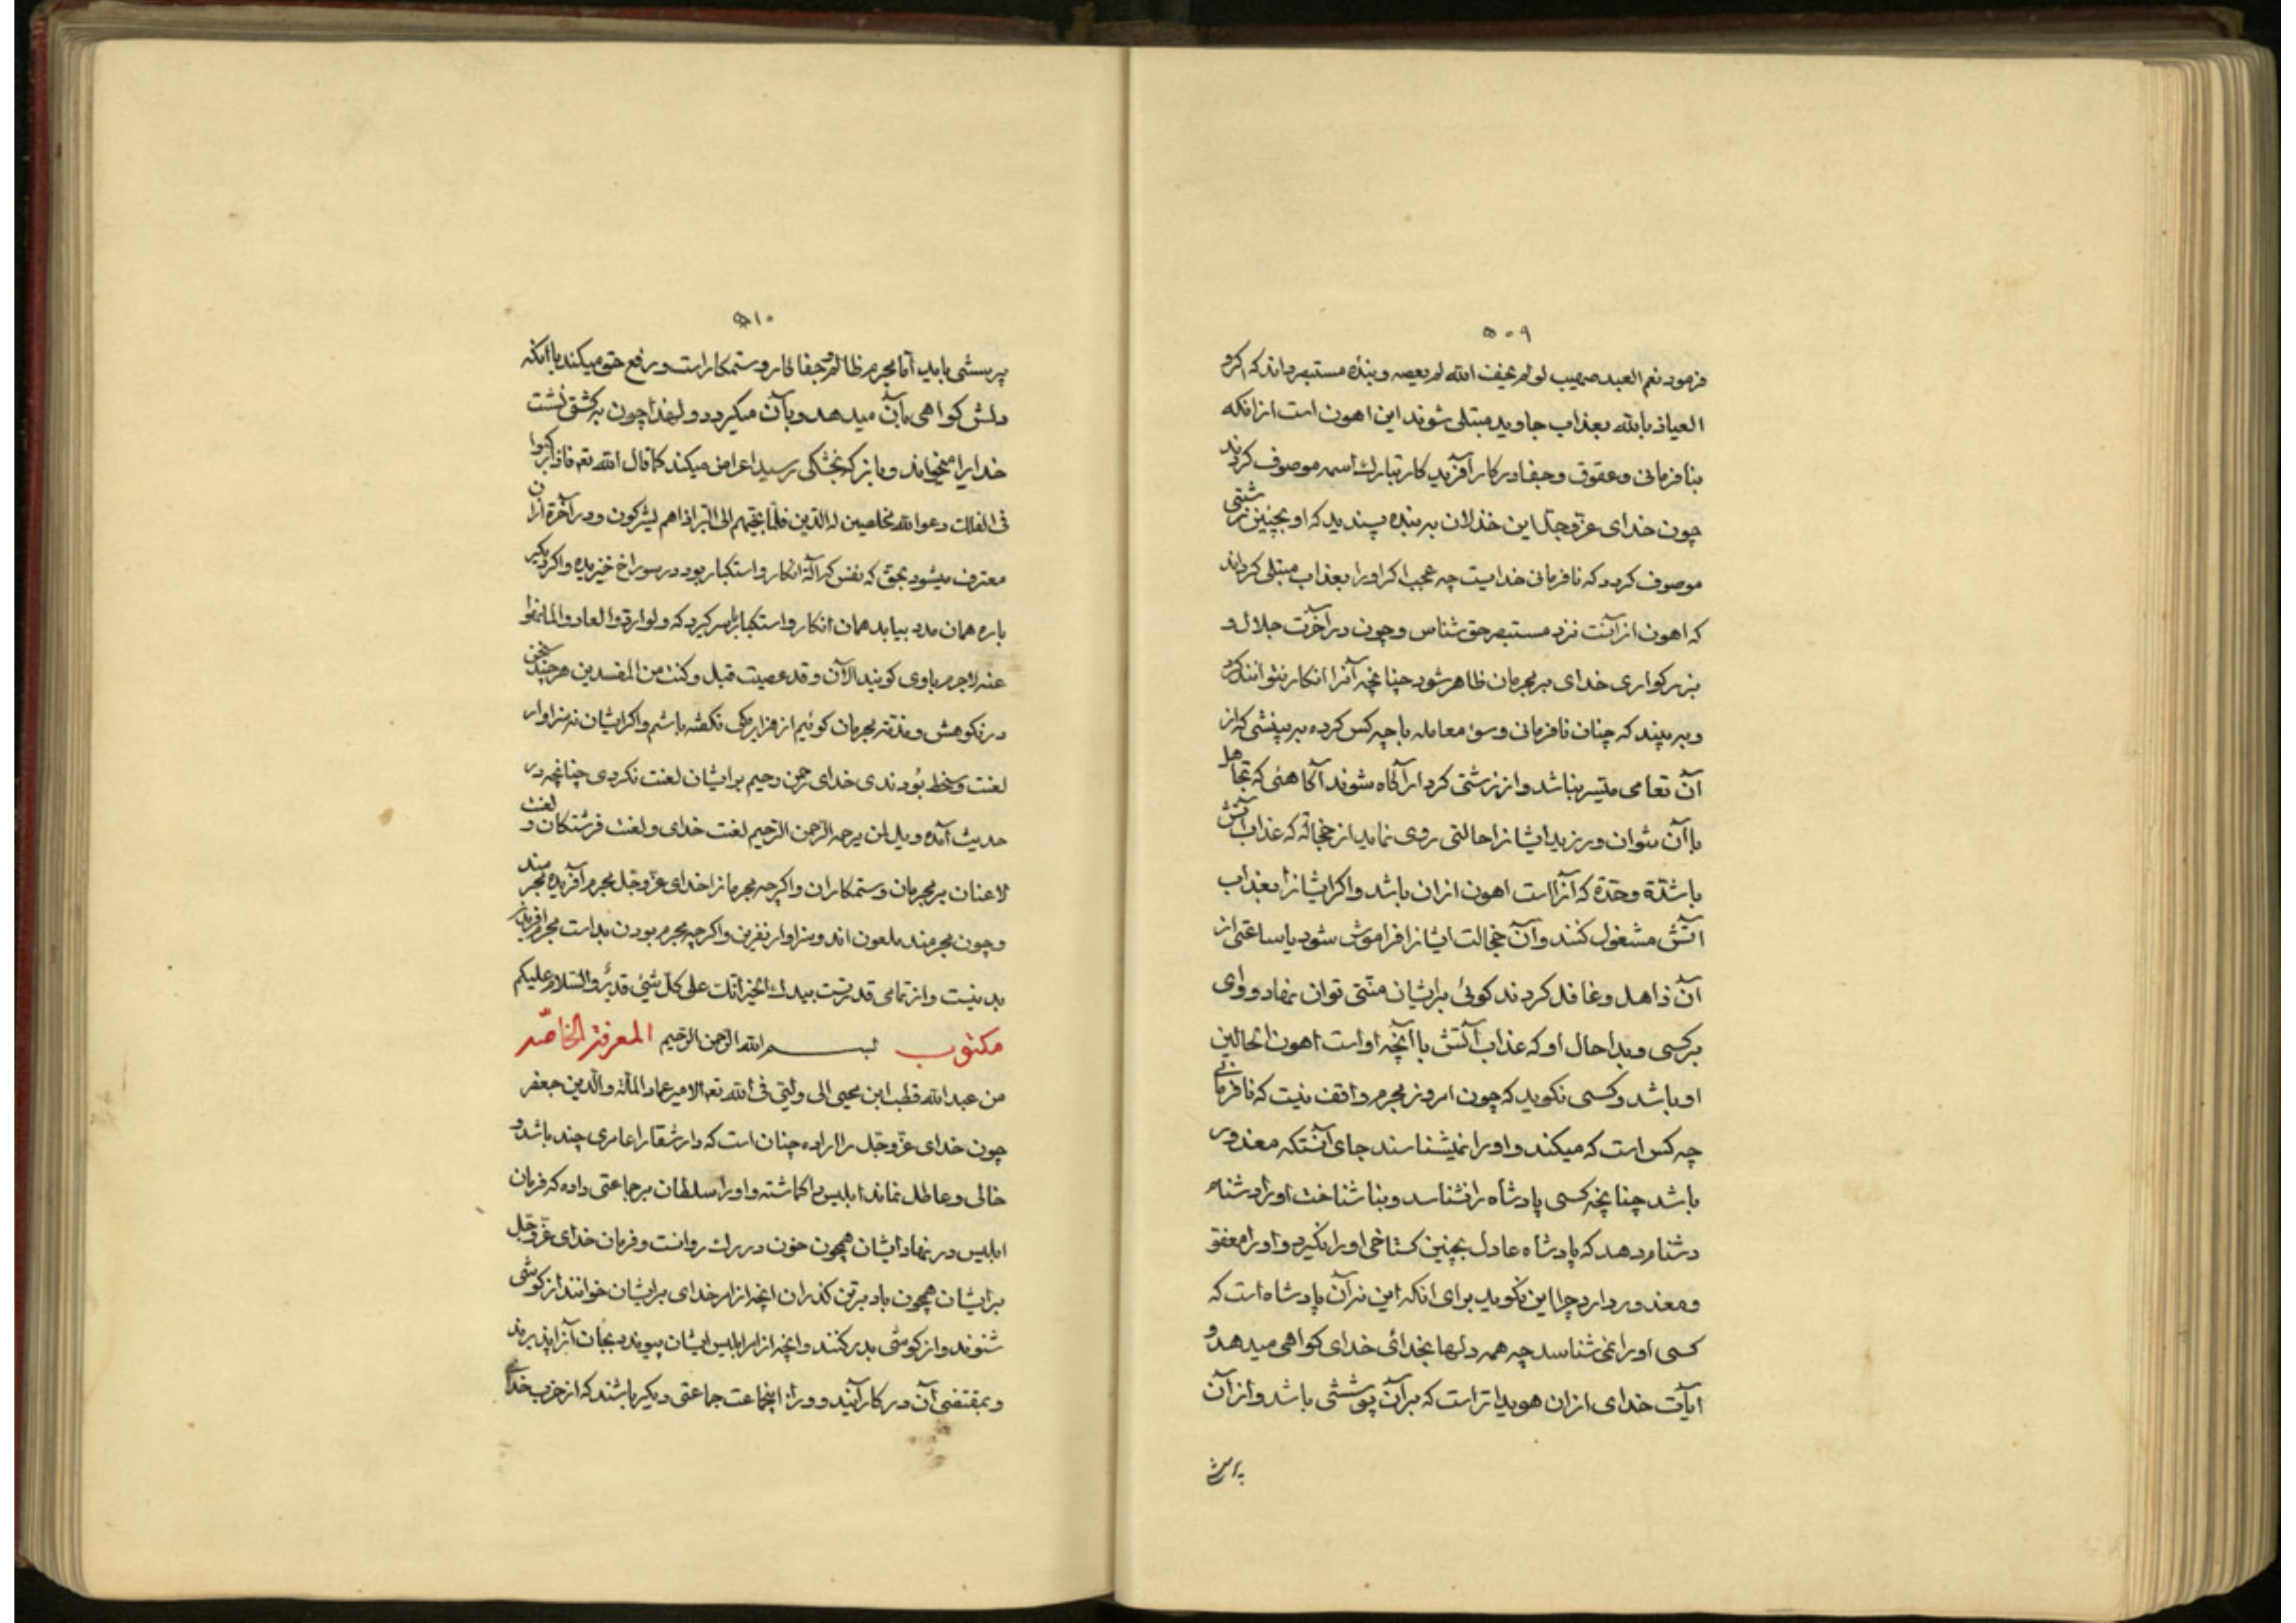 ۵۰۹
فرمود نعم العبد صهیب لو لم یخف الله لم یعصه و بنده مستبصر داند که اگر او
العیاذ بالله بعذاب جاوید مبتلی شوند این اهون است ازانکه
بنافرمانی و عقوق و جفا در کار آفریدکار تبارک اسمه موصوف کردند
چون خدای عزوجل این خذلان بر بنده پسندید که او بچنین زشتی
موصوف کردد که نافرمانی خدایست چه عجب اکر اورا بعذاب مبتلی کرداند
که اهون از آنست نزد مستبصر حق شناس و چون در آخرت جلال و
بزرکواری خدای بر مجرمان ظاهر شود چنانچه آنرا انکار نتوانند کرد
و ببینند که چنان نافرمانی و سوء معامله با چه کس کرده بر بینشی که از
آن تعامی متیسر نباشد و از زشتی کردار آکاه شوند آکاهئی که تجاهل
با آن نتوان ورزید ایشانرا حالتی روی نماید از خجالة که عذاب آتش
باشدّة و حدّة که آنرا است اهون ازان باشد و اکر ایشانرا بعذاب
آتش مشغول کنند و آن خجالت ایشانرا فراموش شود یا ساعتی از
آن ذاهل و غافل کردند کوئی برایشان منتی توان نهاد و وای
بر کسی و بدا حال او که عذاب آتش با آنچه او است اهون الحالین
او باشد و کسی نکوید که چون امروز مجرم واقف نیست که نافرمانی
چه کس است که میکند و اورا نمیشناسند جای آنستکه معذور
باشد چنانچه کسی پادشاه را نشناسد و بناشناخت اورا دشنام
دشنام دهد که پادشاه عادل بچنین کستاخی اورا نکیرد و اورا معفو
و معذور دارد چرا این نکوید برای انکه این نه آن پادشاه است که
کسی اورا نمی شناسد چه همه دلها بخدائی خدای کواهی میدهد و
آیات خدای ازان هویداتر است که بر آن پوششی باشد و از آن
پرسش
۵۱۰
پرسشی باید اما مجرم ظالم و جفاکار و ستمکار است و رفع حق میکند با آنکه
دلش کواهی بآن میدهد و بآن میکرود و لهذا چون بر کشتی نشست
خدایرا میخواند و باز که بخشکی رسید اعراض میکند کما قال الله تعه فاذا رکبوا
فی الفلک دعوا الله مخلصین له الدین فلما نجیهم الی البر اذا هم یشرکون و در آخرة ازان
معترف میشود بحق که نفس که آلة انکار و استکبار بود در سوراخ خزیده و اکر دیکر
باره همان مدد بیابد همان انکار و استکبار از سر کیرد که و لو ردوا لعادوا لما نهوا
عنه لاجرم باوی کویند الآن و قد عصیت قبل و کنت من المفسدین هر چند سخن
در نکوهش و مذمّة مجرمان کوئیم از هزار یکی نکفته باشم و اکر ایشان نه سزاوار
لعنت و سخط بودندی خدای رحمن رحیم بر ایشان لعنت نکردی چنانچه در
حدیث آمده ویل لمن یرحمه الرحمن الرحیم لعنت خدای و لعنت فرشتکان و لعنت
لاعنان بر مجرمان و ستمکاران و اکرچه مجرمانرا خدای عزوجل مجرم آفریده مجرمند
و چون مجرمند ملعون اند و سزاوار نفرین و اکرچه مجرم بودن بد است مجرم آفریدن
بد نیست و از تمامی قدرتست بیدک الخیر انک علی کل شیئ قدیر و السلام علیکم
مکتوب بسم الله الرحمن الرحیم المعرفة الخاصّه
من عبد الله قطب ابن محیی الی ولیی فی الله تعه الامیر عماد الملة و الدین جعفر
چون خدای عزوجل را اراده چنان است که دار شقا را عامری چند باشد و
خالی و عاطل نماند ابلیس را کماشته و اورا سلطان بر جماعتی داده که فرمان
ابلیس در نهاد ایشان همچون خون در رک روانست و فرمان خدای عزوجل
بر ایشان همچون باد بر تن کذران انچه از امر خدای بر ایشان خوانند از کوشی
شنوند و از کوشی بدر کنند و انچه از امر ابلیس بایشان پیوندد بجان آنرا پذیرند
و بمقتضی آن در کار آیند و ورا اینجماعت جماعتی دیکر باشند که از حزب خدای